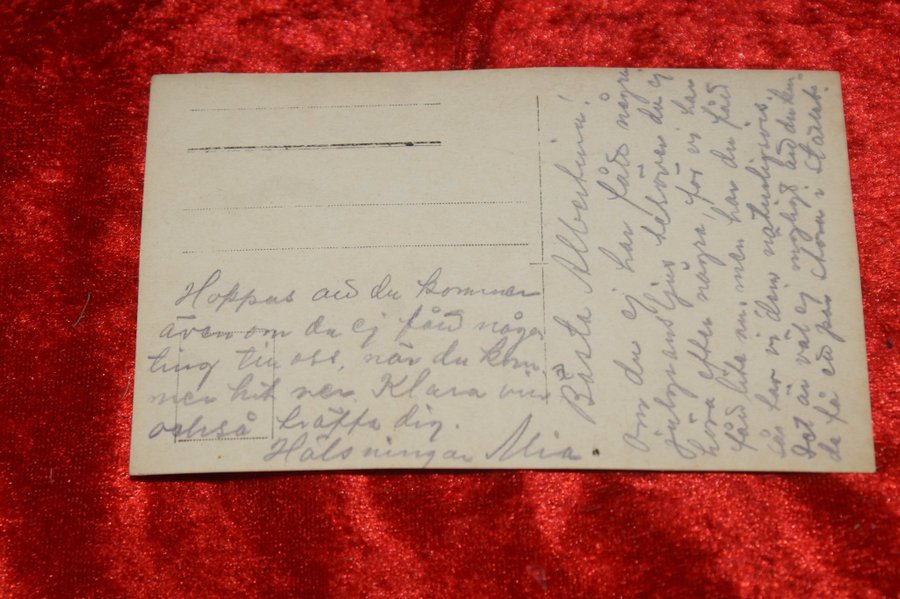 Bästa Albertina!
Om du ej har fått några
julgransljus behöver du ej
höra efter några, för vi har
fått lite nu men har du fått
så tar vi dem naturligtvis
Det är väl ej möjligt att du kun-
de få ett par
Hoppas att du kommer
även om du ej fått någo
ting till oss, när du kom
mer hit ner. Klara vill
också träffa dig.
Hälsningar Mia.